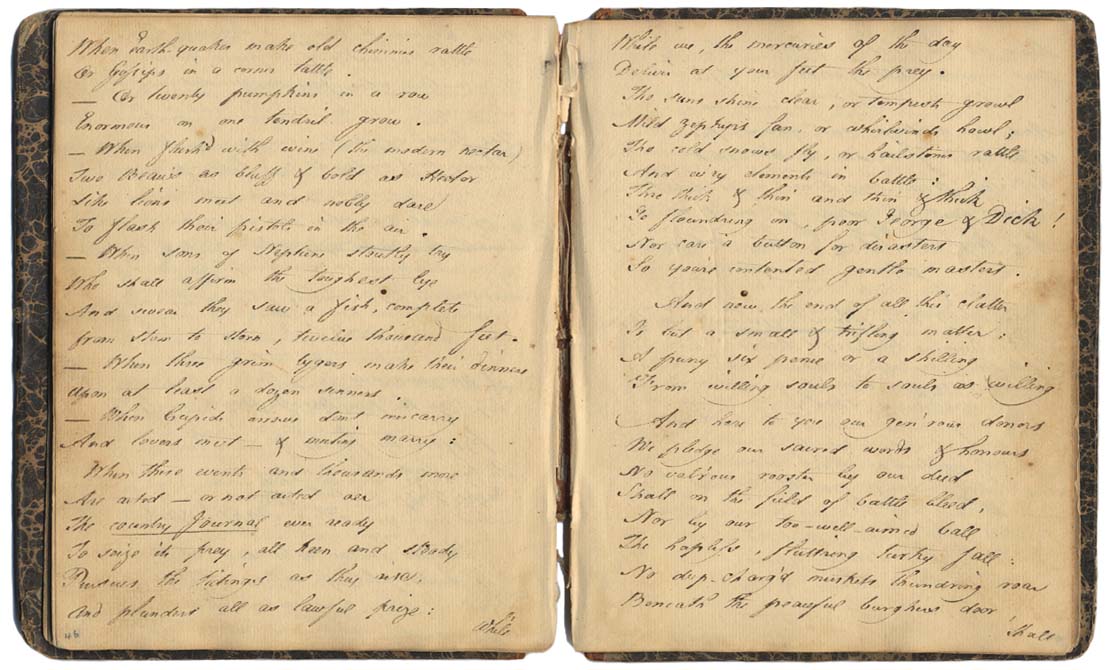 When Earth-quakes make old chimnies rattle
Or Gossips in a corner tattle.
— Or twenty pumpkins in a row
Enormous on one tendril grow.
— When flush'd with wine (the modern nectar)
Two Beaus as bluff & bold as Hector
Like lions meet and nobly dare
To flash their pistols in the air.
— When sons of Neptune stoutly try
Who shall affirm the toughest lye
And swear they saw a fish, complete
from stem to stern, twelve thousand feet.
— When three grim tygers make their dinners
Upon at least a dozen sinners.
— When Cupids arrows dont miscarry
And lovers meet — & meeting marry:
When these events and thousands more
Are acted — or not acted oer
The country Journal ever ready
To seize its prey, all keen and steady
Pursues the tidings as they rise,
And plunders all as lawful prize:
While
46
While we, the mercuries of the day
Deliver at your feet the prey.
Tho suns shine clear, or tempests growl
Mild zephyrs fan, or whirlwinds howl;
Tho cold snows fly, or hailstones rattle
And wry elements in battle:
Thro thick & thin and thin & thick
Go floundring on, poor George & Dick!
Nor care a button for disasters
So you're contented gentle masters.
And now the end of all this clatter
Is but a small & trifling matter:
A puny six pence or a shilling
From willing souls to souls as willing
And here to you our gen'rous donors
We pledge our sacred words & honours
No val'rous rooster by our deed
Shall on the field of battle bleed,
Nor by our too-well-aimed ball
The hapless, fluttring turky fall:
No deep-charg'd muskets thundring roar
Beneath the peaceful burghers door
Shall